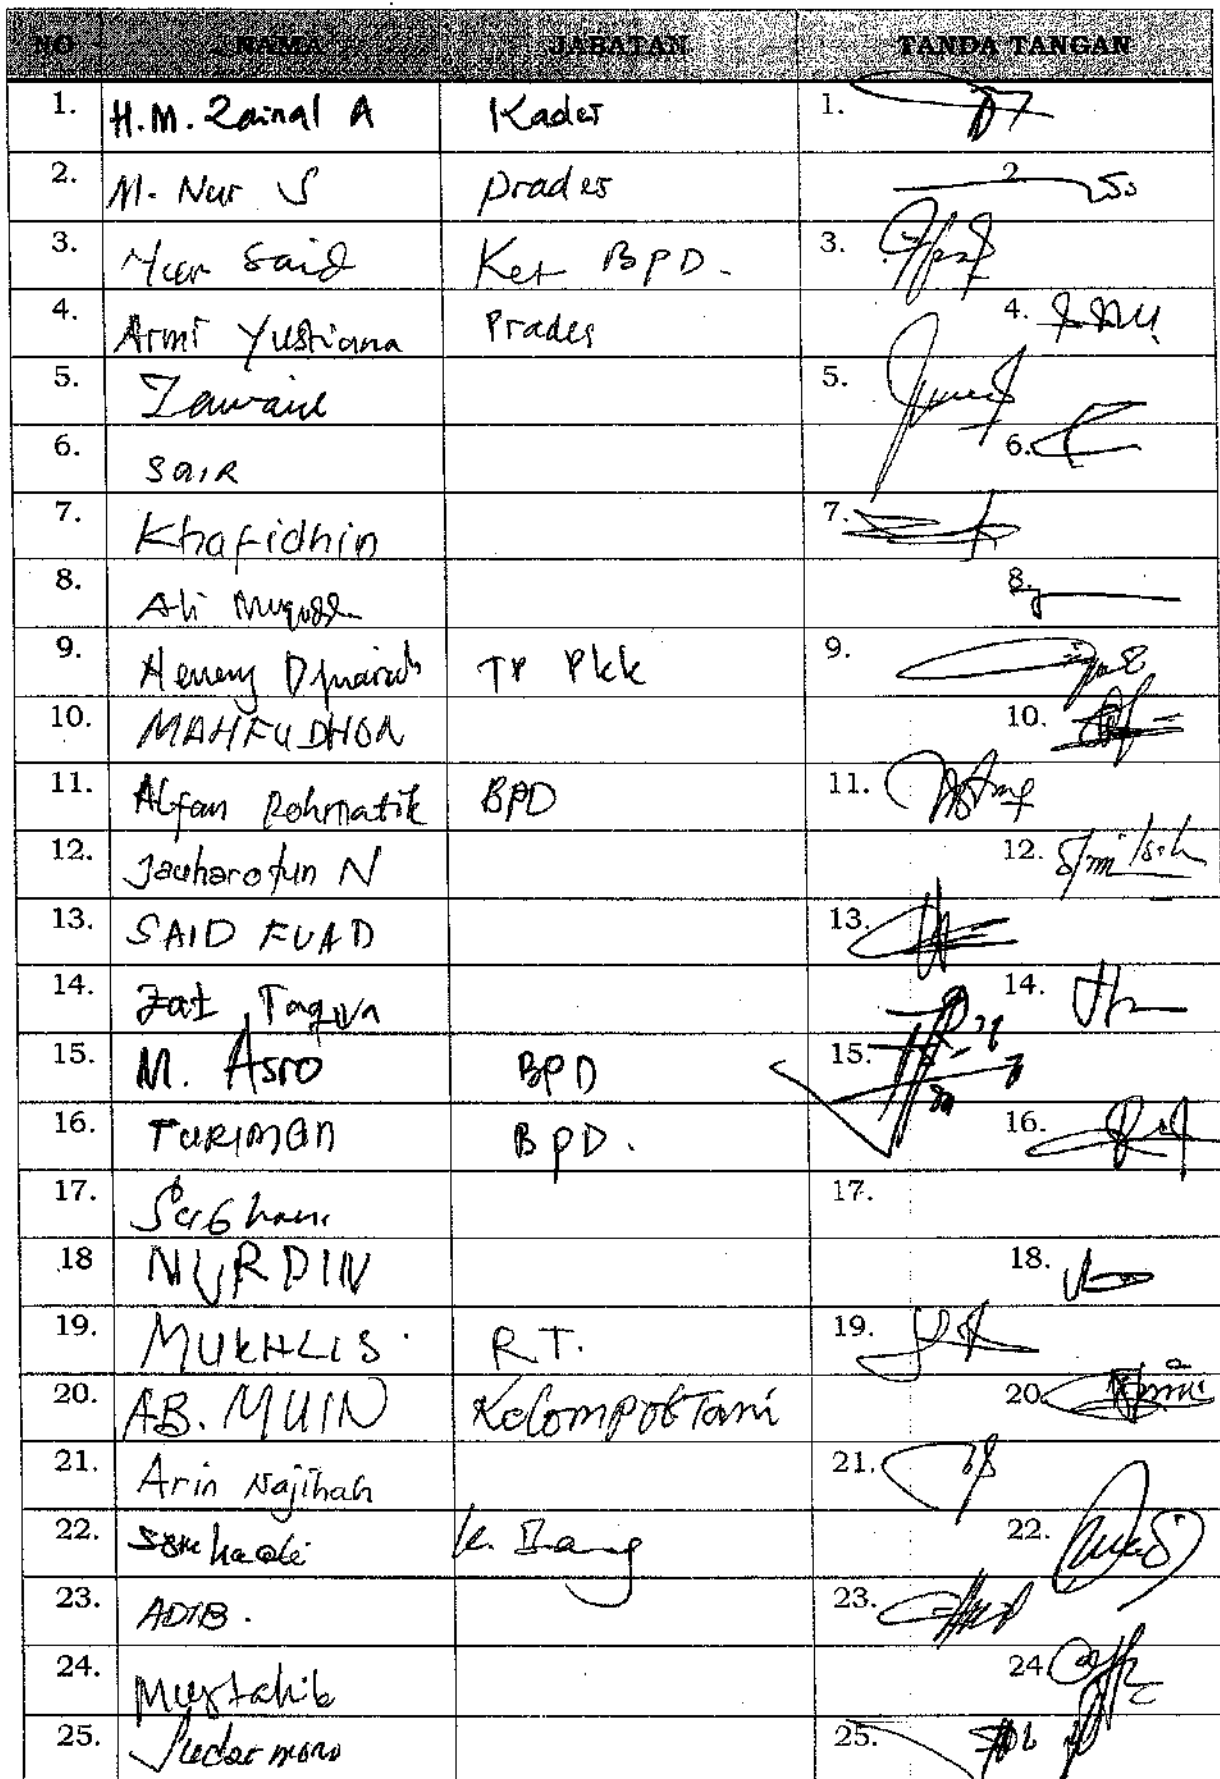 NO NAMA JABATAN TANDA TANGAN
1. H.M. Zainal A Kades 1.
2. M. Nur S Prades 2.
3. Nur Said Ket BPD. 3.
4. Armi Yustiana Prades 4.
5. Zawaid 5.
6. SAIR 6.
7. Khafidhin 7.
8. Ali 8.
9. Heneny TP PKK 9.
10. MAHFUDHON 10.
11. Alfan Rohmatik BPD 11.
12. Jauharotun N 12.
13. SAID FUAD 13.
14. Zat Taqwa 14.
15. M. Asro BPD 15.
16. TURIMAN BPD. 16.
17. 17.
18 NURDIN 18.
19. MUKHLIS. R.T. 19.
20. AB. MUIN Kelompok Tani 20.
21. Arin Najihah 21.
22. 22.
23. ADIB. 23.
24. Mustahib 24.
25. Sudarmono 25.